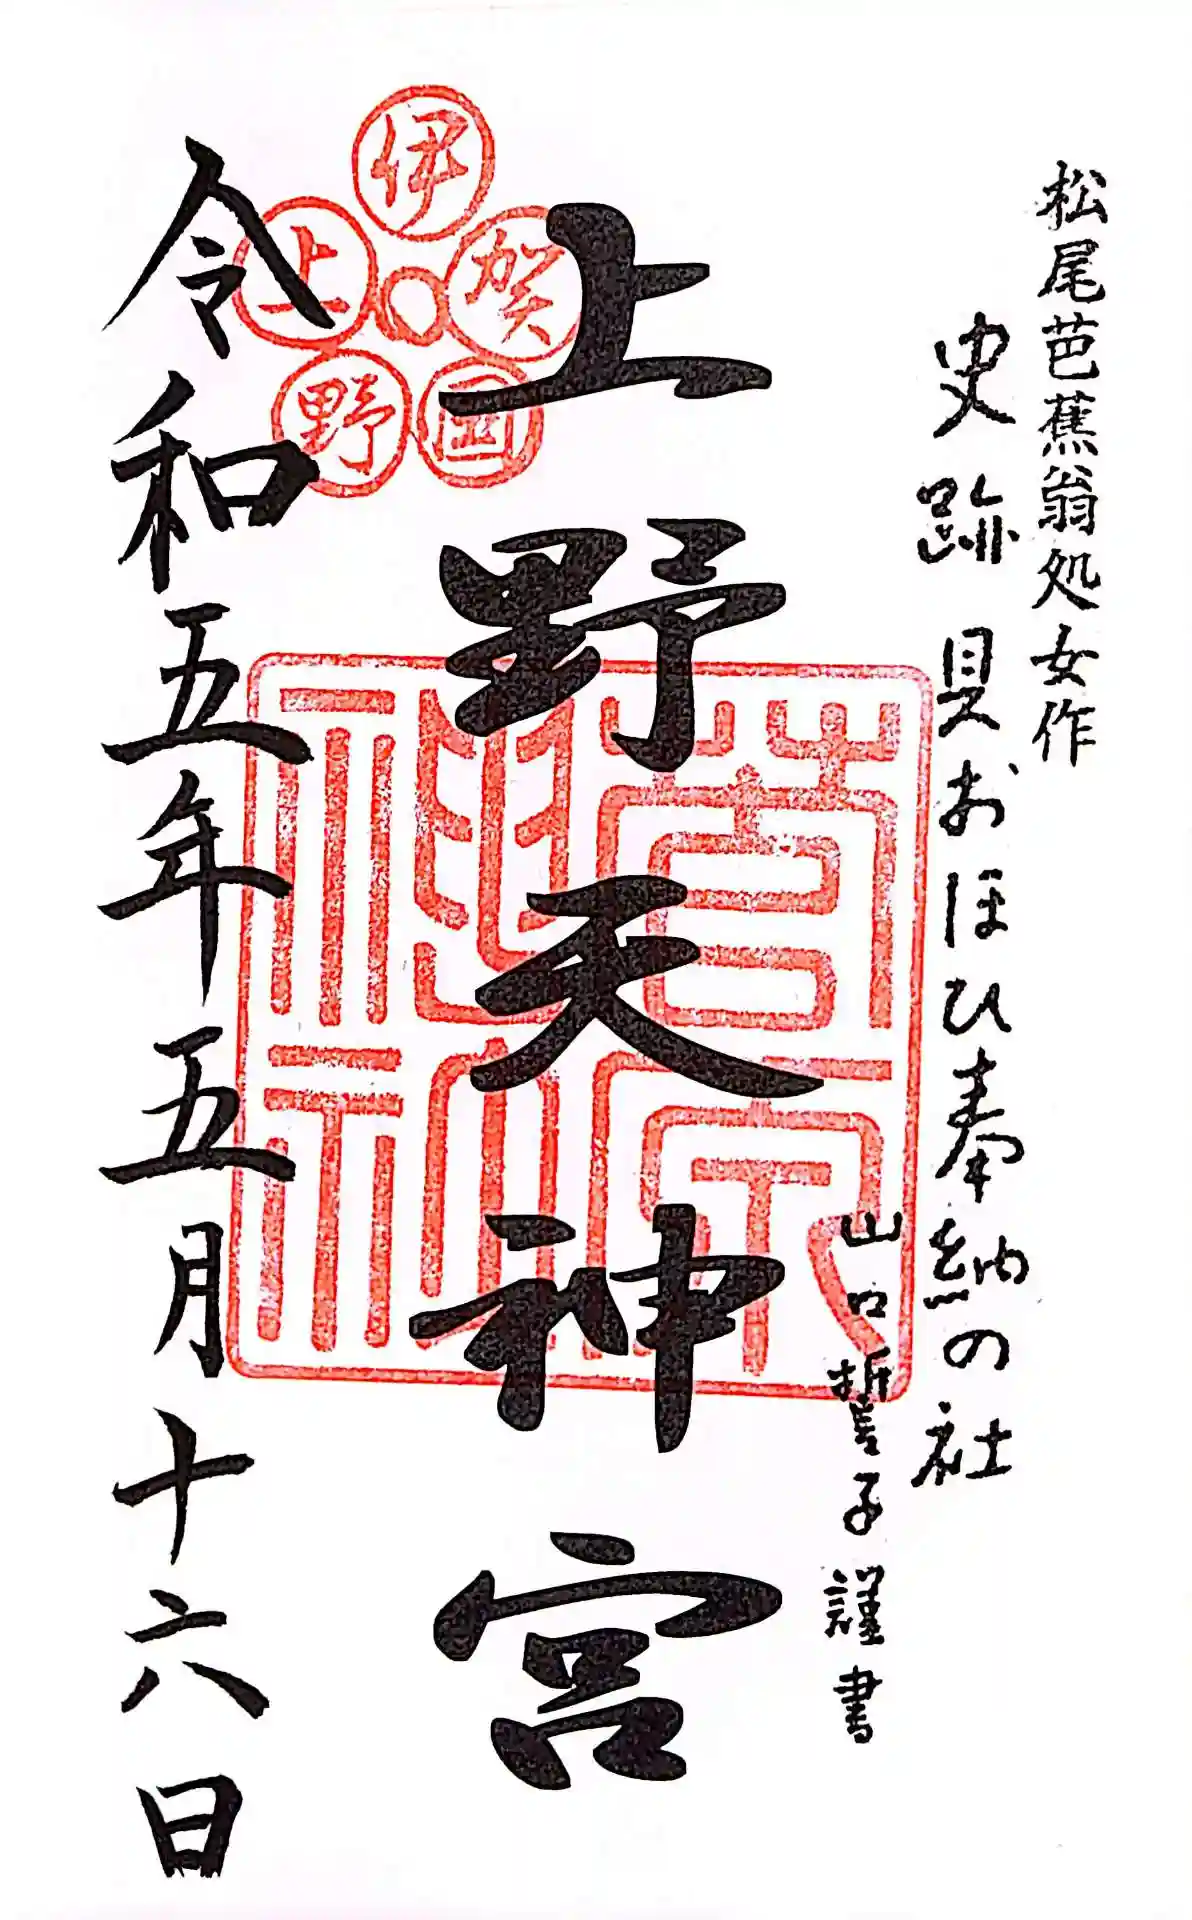 松尾芭蕉翁処女作
史跡 貝おほひ奉納の社
山口誓子謹書
上野天神宮
伊賀国上野
令和五年五月十六日